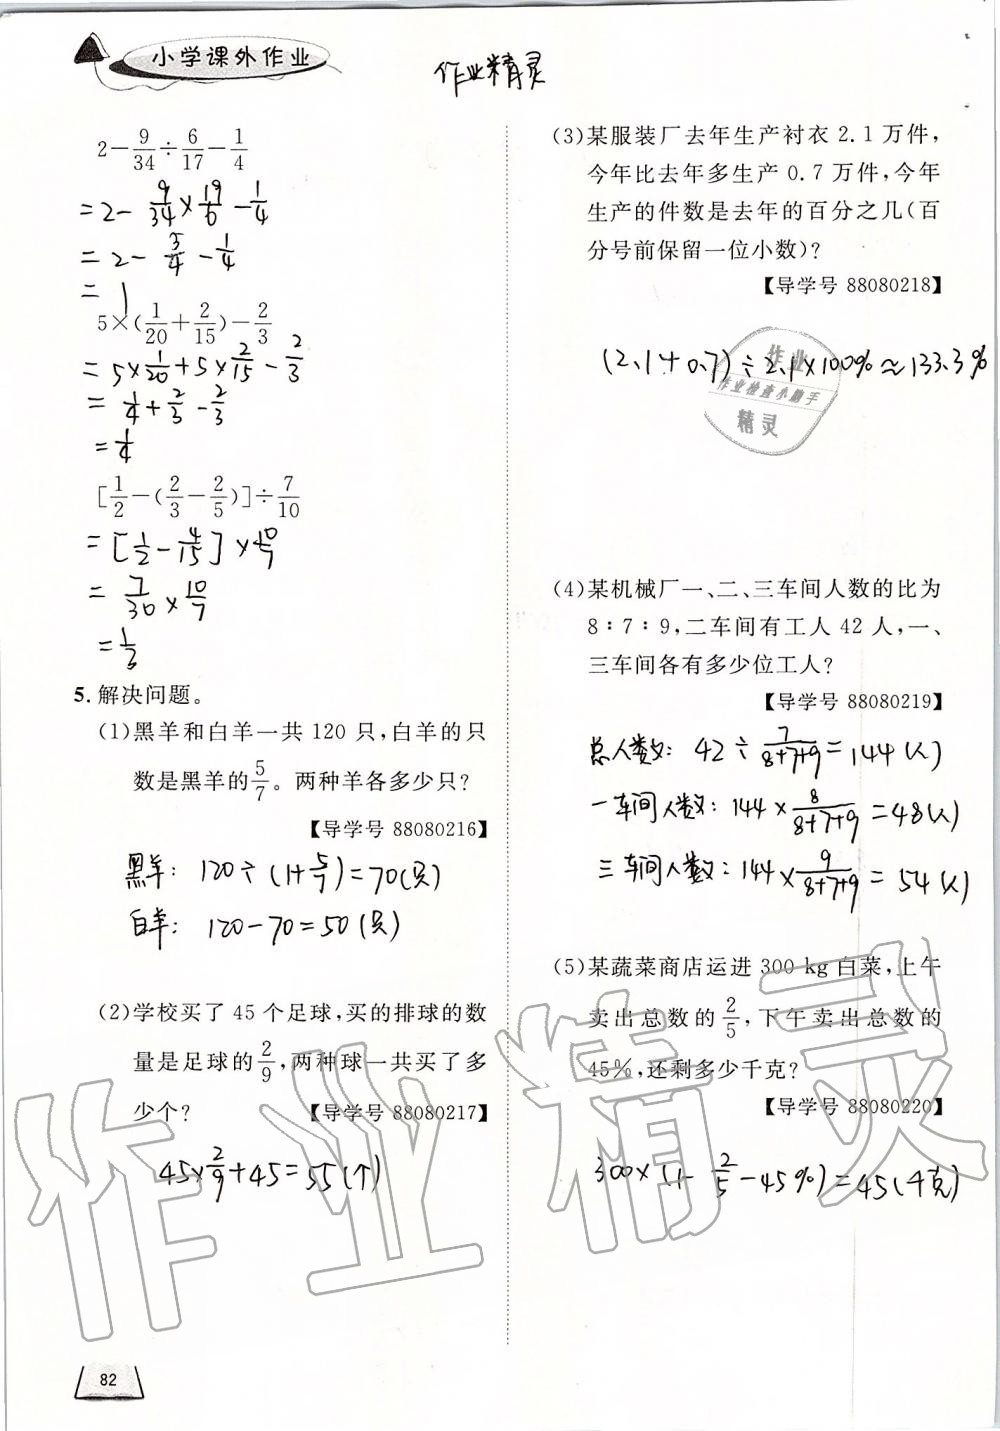 小学课外作业
作业精灵
2-9/34÷6/17-1/4
=2-9/34×19/6-1/4
=2-3/4-1/4
=1
5×(1/20+2/15)-2/3
=5×1/20+5×2/15-2/3
=1/4+2/3-2/3
=1/4
[1/2-(2/3-2/5)]÷7/10
=[1/2-4/15]×10/7
=7/30×10/7
=1/3
5.解决问题。
(1)黑羊和白羊一共120只,白羊的只
数是黑羊的5/7。两种羊各多少只?
【导学号 88080216】
黑羊: 120÷(1+5/7)=70(只)
白羊: 120-70=50(只)
(2)学校买了45个足球,买的排球的数
量是足球的2/9,两种球一共买了多
少个?【导学号 88080217】
45×2/9+45=55(个)
82
(3)某服装厂去年生产衬衣2.1万件,
今年比去年多生产0.7万件,今年
生产的件数是去年的百分之几(百
分号前保留一位小数)?
【导学号 88080218】
(2.1+0.7)÷2.1×100%≈133.3%
作业
作业检查小助手
精灵
(4)某机械厂一、二、三车间人数的比为
8∶7∶9,二车间有工人42人,一、
三车间各有多少位工人?
【导学号 88080219】
总人数: 42÷7/(8+7+9)=144(人)
一车间人数: 144×8/(8+7+9)=48(人)
三车间人数: 144×9/(8+7+9)=54(人)
(5)某蔬菜商店运进300 kg白菜,上午
卖出总数的2/5,下午卖出总数的
45%,还剩多少千克?
【导学号 88080220】
300×(1-2/5-45%)=45(千克)
作业精灵